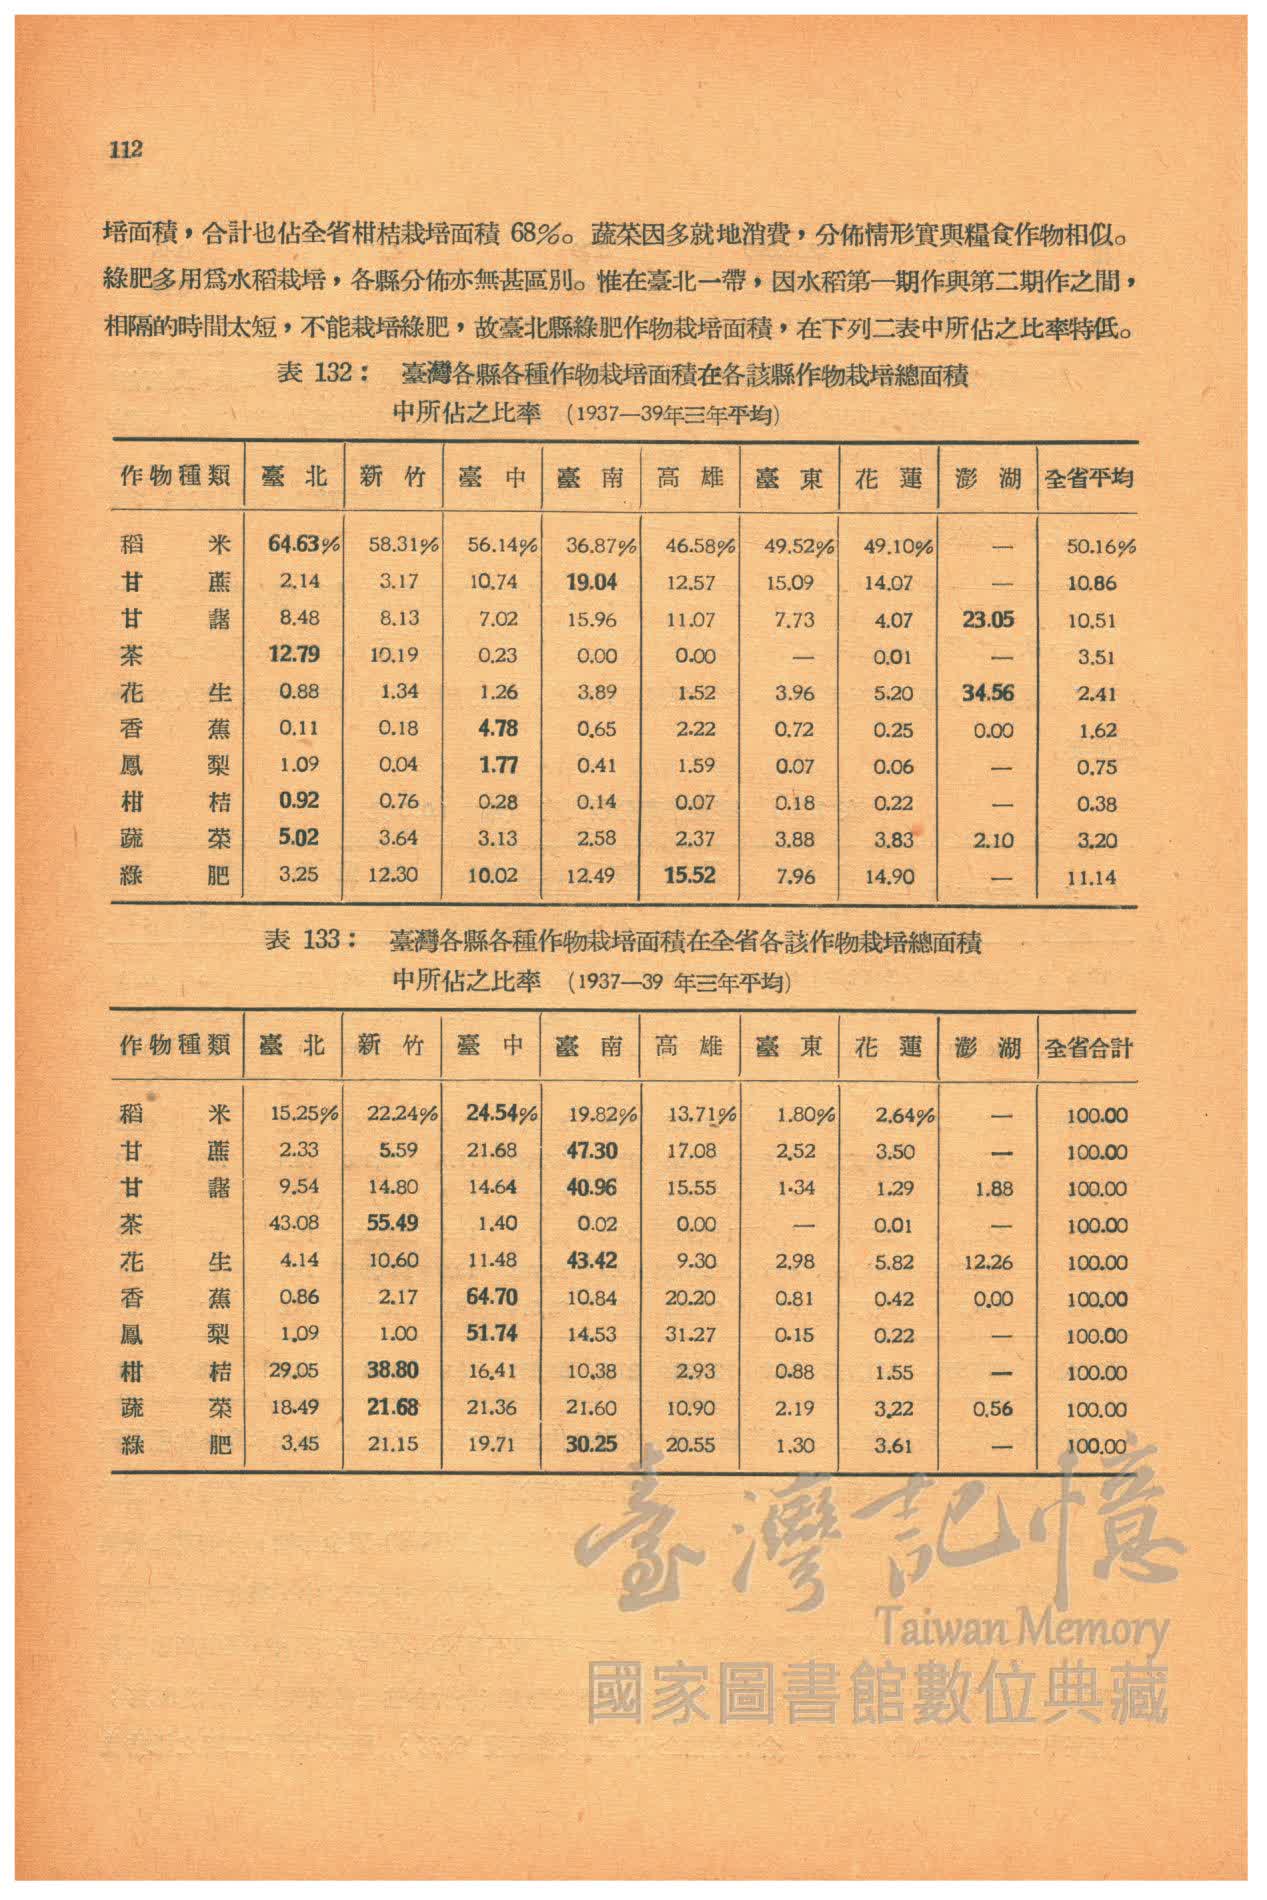 112
培面積，合計也佔全省柑桔栽培面積 68%。蔬菜因多就地消費，分佈情形實與糧食作物相似。
綠肥多用爲水稻栽培，各縣分佈亦無甚區別。惟在臺北一帶，因水稻第一期作與第二期作之間，
相隔的時間太短，不能栽培綠肥，故臺北縣綠肥作物栽培面積，在下列二表中所佔之比率特低。
表 132： 臺灣各縣各種作物栽培面積在各該縣作物栽培總面積
中所佔之比率 (1937—39年三年平均)
作物種類 臺北 新竹 臺中 臺南 高雄 臺東 花蓮 澎湖 全省平均
稻米 64.63% 58.31% 56.14% 36.87% 46.58% 49.52% 49.10% — 50.16%
甘蔗 2.14 3.17 10.74 19.04 12.57 15.09 14.07 — 10.86
甘藷 8.48 8.13 7.02 15.96 11.07 7.73 4.07 23.05 10.51
茶 12.79 10.19 0.23 0.00 0.00 — 0.01 — 3.51
花生 0.88 1.34 1.26 3.89 1.52 3.96 5.20 34.56 2.41
香蕉 0.11 0.18 4.78 0.65 2.22 0.72 0.25 0.00 1.62
鳳梨 1.09 0.04 1.77 0.41 1.59 0.07 0.06 — 0.75
柑桔 0.92 0.76 0.28 0.14 0.07 0.18 0.22 — 0.38
蔬菜 5.02 3.64 3.13 2.58 2.37 3.88 3.83 2.10 3.20
綠肥 3.25 12.30 10.02 12.49 15.52 7.96 14.90 — 11.14
表 133： 臺灣各縣各種作物栽培面積在全省各該作物栽培總面積
中所佔之比率 (1937—39 年三年平均)
作物種類 臺北 新竹 臺中 臺南 高雄 臺東 花蓮 澎湖 全省合計
稻米 15.25% 22.24% 24.54% 19.82% 13.71% 1.80% 2.64% — 100.00
甘蔗 2.33 5.59 21.68 47.30 17.08 2.52 3.50 — 100.00
甘藷 9.54 14.80 14.64 40.96 15.55 1.34 1.29 1.88 100.00
茶 43.08 55.49 1.40 0.02 0.00 — 0.01 — 100.00
花生 4.14 10.60 11.48 43.42 9.30 2.98 5.82 12.26 100.00
香蕉 0.86 2.17 64.70 10.84 20.20 0.81 0.42 0.00 100.00
鳳梨 1.09 1.00 51.74 14.53 31.27 0.15 0.22 — 100.00
柑桔 29.05 38.80 16.41 10.38 2.93 0.88 1.55 — 100.00
蔬菜 18.49 21.68 21.36 21.60 10.90 2.19 3.22 0.56 100.00
綠肥 3.45 21.15 19.71 30.25 20.55 1.30 3.61 — 100.00
臺灣記憶
Taiwan Memory
國家圖書館數位典藏